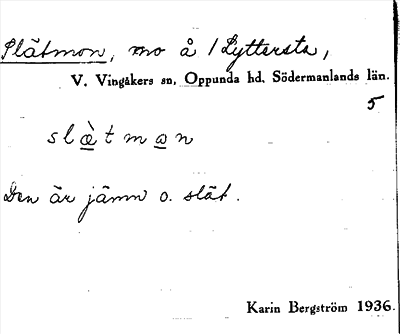 Slätmon, mo å 1 Lyttersta,
V. Vingåkers sn, Oppunda hd, Södermanlands län.
5
slæ̀tman
Den är jämn o. slät.
Karin Bergström 1936.